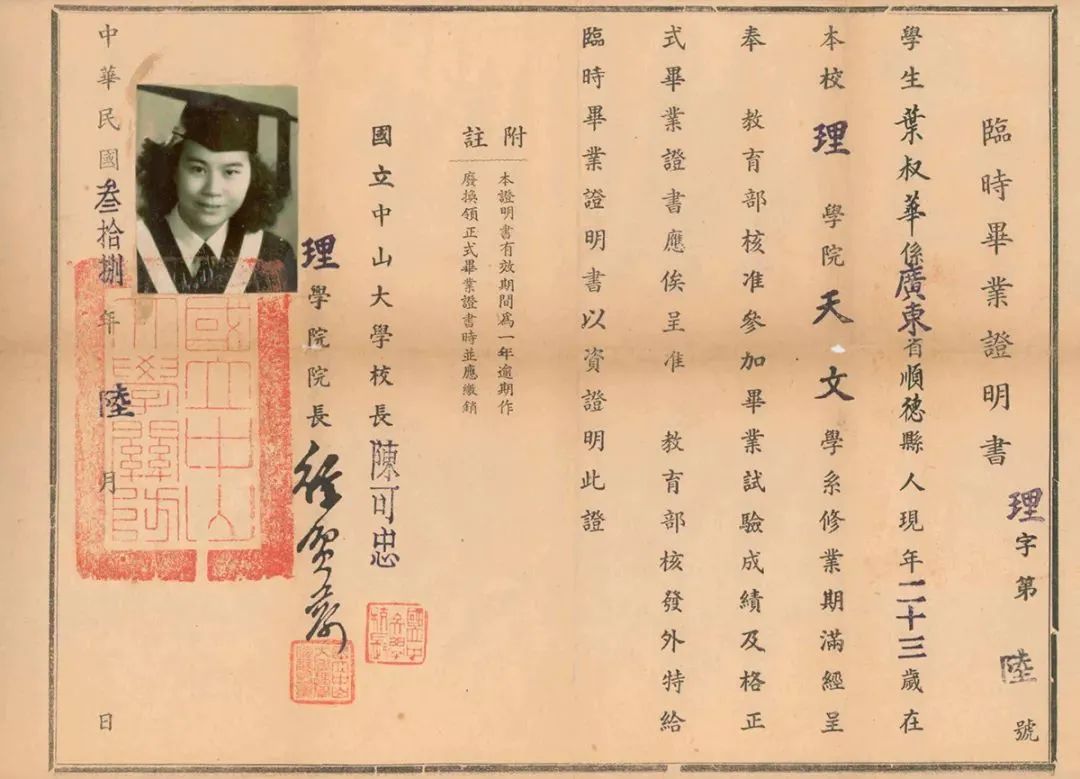 臨時畢業證明書
理字第陸號
學生葉叔華係廣東省順德縣人現年二十三歲在
本校理學院天文學系修業期滿經呈
奉 教育部核准參加畢業試驗成績及格正
式畢業證書應俟呈准 教育部核發外特給
臨時畢業證明書以資證明此證
附註
本證明書有效期間為一年逾期作
廢換領正式畢業證書時並應繳銷
國立中山大學校長陳可忠
理學院院長
中華民國叁拾捌年陸月 日
國立中山
大學關防